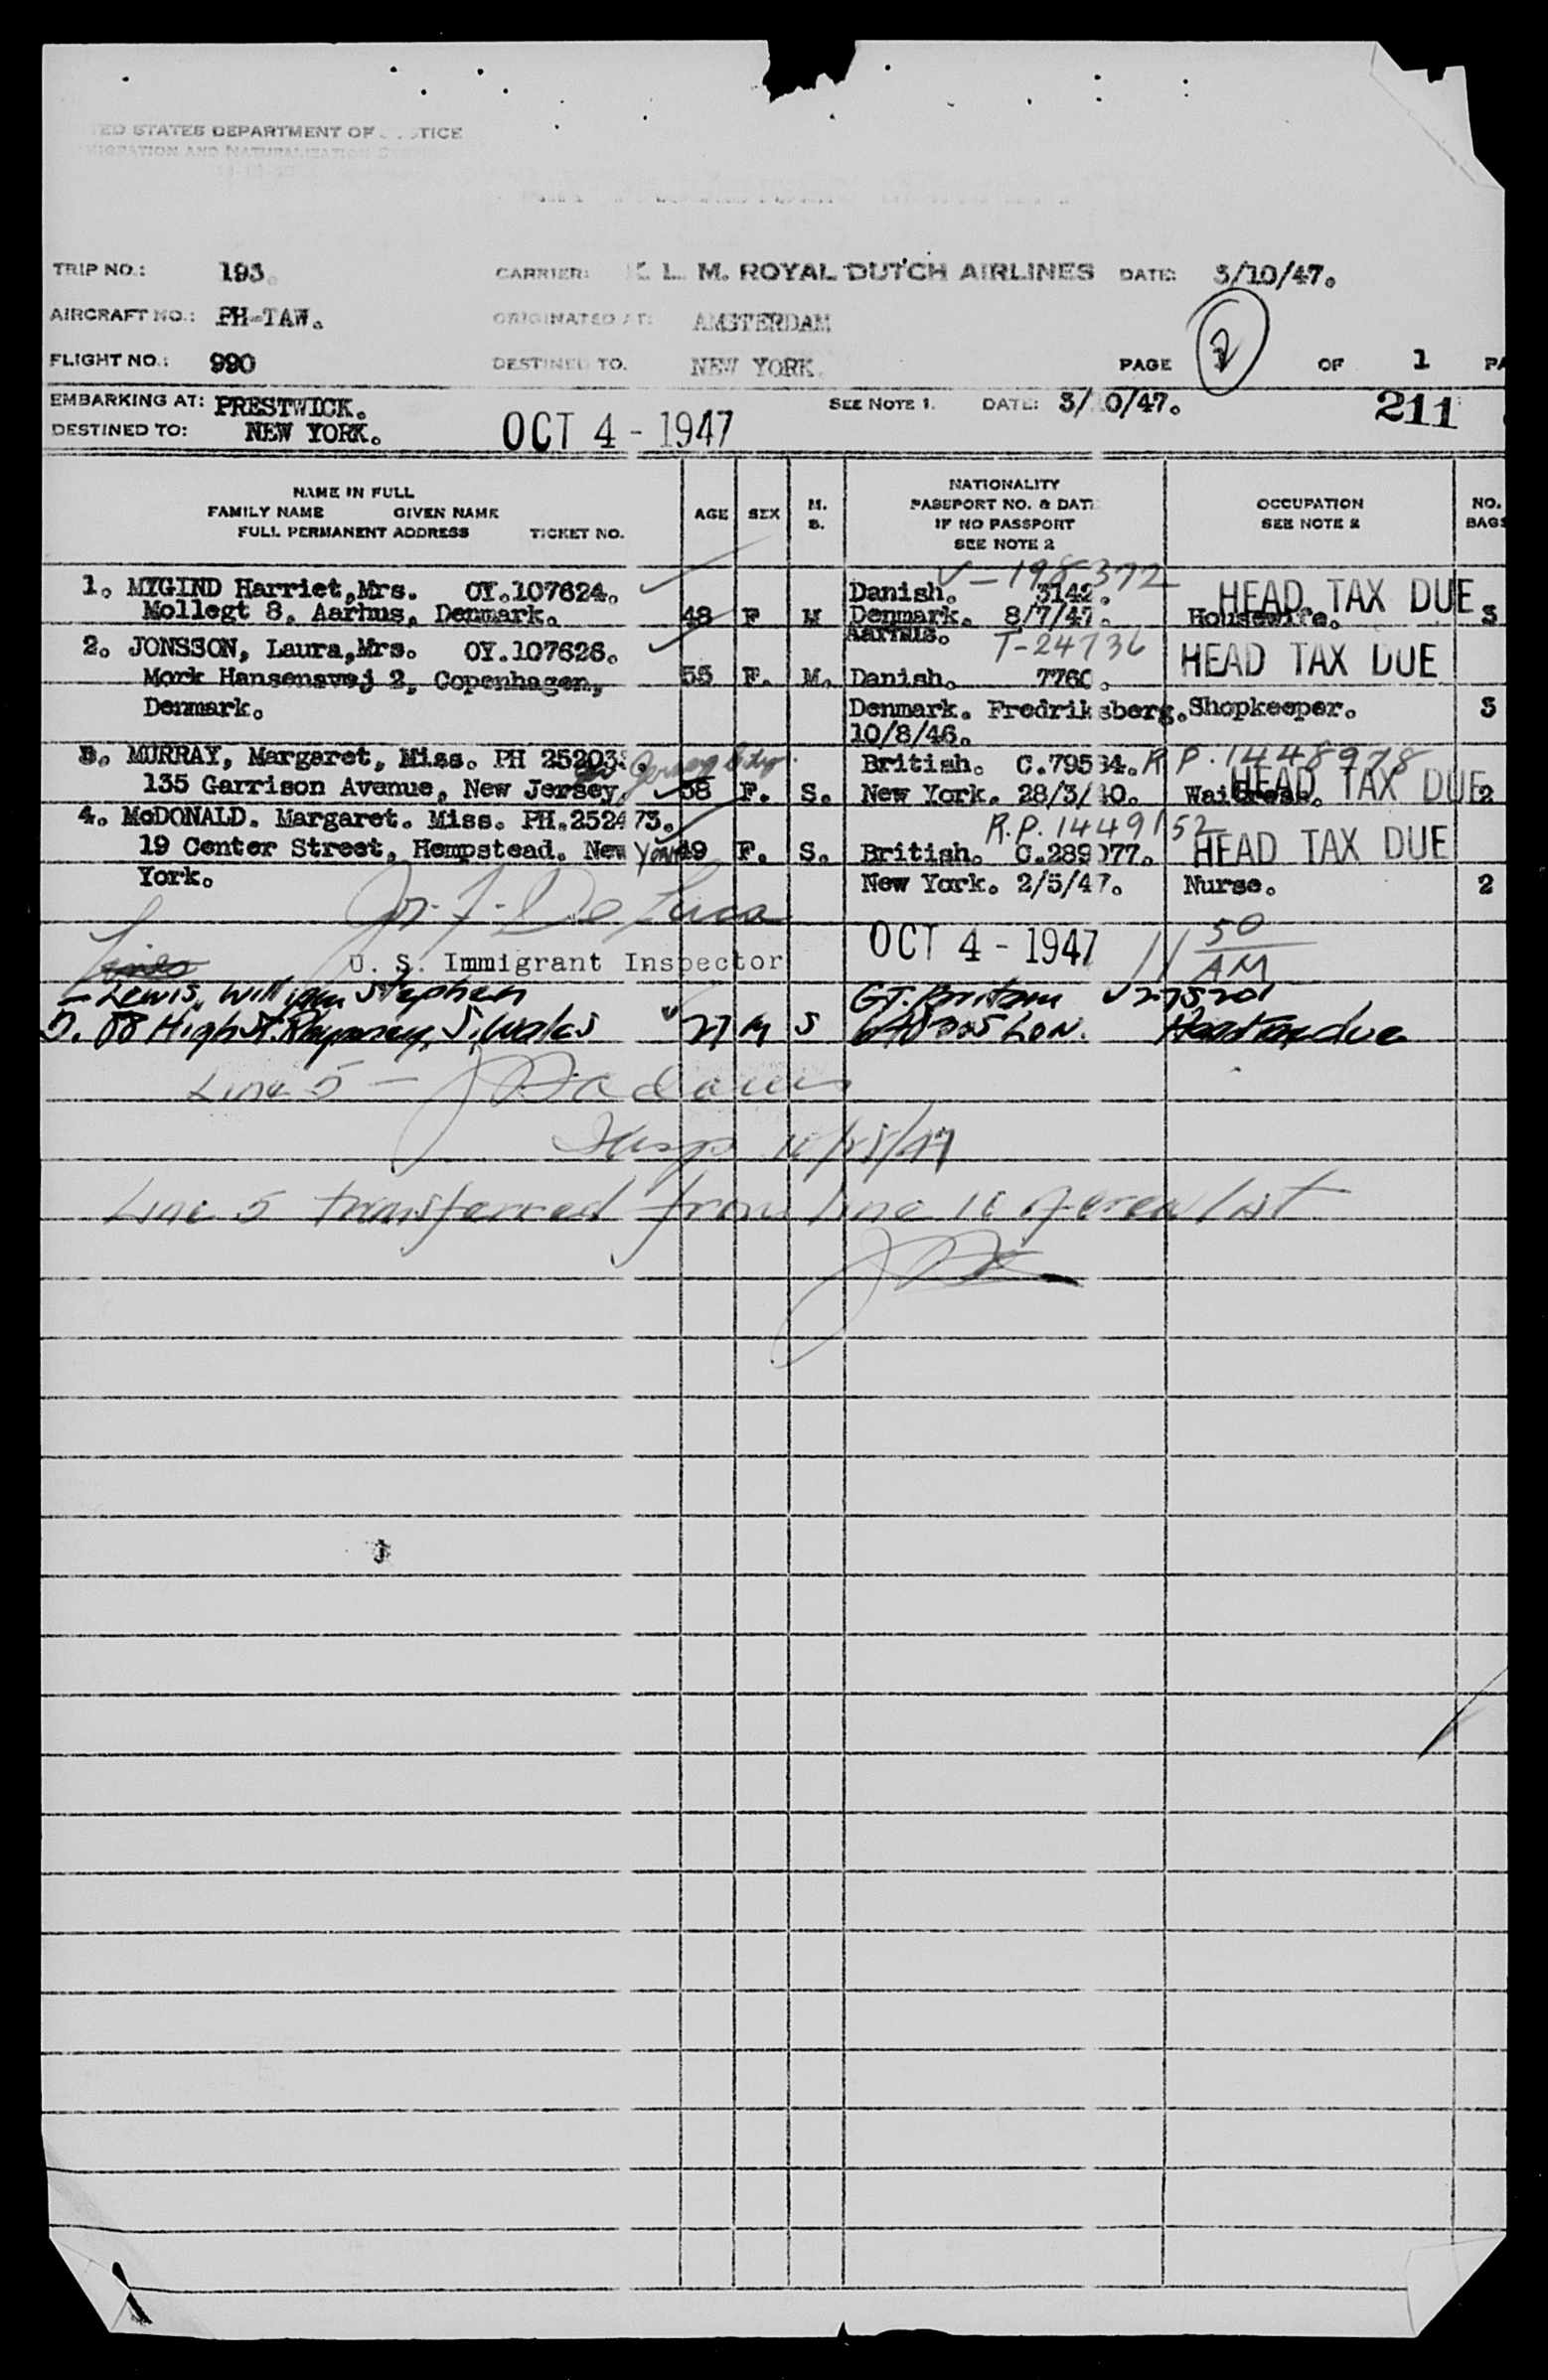 TED STATES DEPARTMENT OF TICE
MIGRATION AND NATURALIZATION
TRIP NO.: 193. CARRIER: K. L. M. ROYAL DUTCH AIRLINES DATE: 3/10/47.
AIRCRAFT NO.: PH-TAW. ORIGINATED AT: AMSTERDAM
FLIGHT NO.: 990 DESTINED TO. NEW YORK. PAGE 2 OF 1 PA
EMBARKING AT: PRESTWICK. SEE NOTE 1. DATE: 3/10/47. 211
DESTINED TO: NEW YORK. OCT 4 - 1947
NAME IN FULL
FAMILY NAME GIVEN NAME
FULL PERMANENT ADDRESS TICKET NO.
AGE SEX M. S.
NATIONALITY
PASSPORT NO. & DAT
IF NO PASSPORT
SEE NOTE 2
OCCUPATION
SEE NOTE 2
NO. BAGS
V-198372
1. MYGIND Harriet, Mrs. OY.107624. Danish. 3142. HEAD TAX DUE
Mollegt 8. Aarhus, Denmark. 48 F M Denmark. 8/7/47. Housewife. 3
Aarhus. T-24736
2. JONSSON, Laura, Mrs. OY.107626. HEAD TAX DUE
Mork Hansensvej 2, Copenhagen, 55 F. M. Danish. 7760.
Denmark. Denmark. Fredriksberg. Shopkeeper. 3
10/8/46.
3. MURRAY, Margaret, Miss. PH 25203 British. C.79534. R P. 1448978
Jersey City
135 Garrison Avenue, New Jersey. 38 F. S. New York. 28/3/40. Waitress. HEAD TAX DUE 2
4. McDONALD. Margaret. Miss. PH.252473. R.P. 1449152
19 Center Street, Hempstead. New York 49 F. S. British. C.289077. HEAD TAX DUE
York. New York. 2/5/47. Nurse. 2
Jn. F. De Luca
U. S. Immigrant Inspector OCT 4 - 1947 11 50 AM
Lines
Lewis, William Stephen GT. Britain V275201
5. 88 High St. Rhymney, S. Wales 27 M S LON. Head Tax due
Line 5 - J Adams
Insp
Line 5 transferred from line 16 of crew list